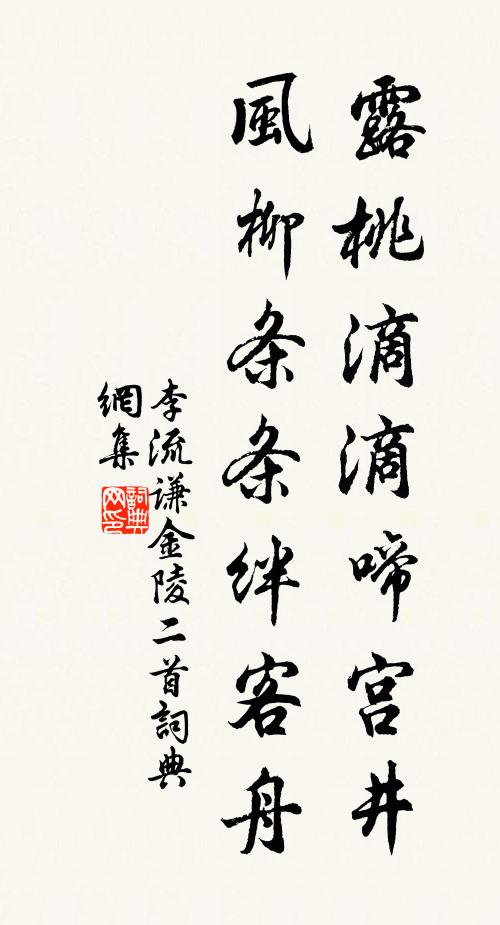 露桃滴滴啼宫井
風柳条条绊客舟
李流谦金陵二首詞典
網集
詞典
网印